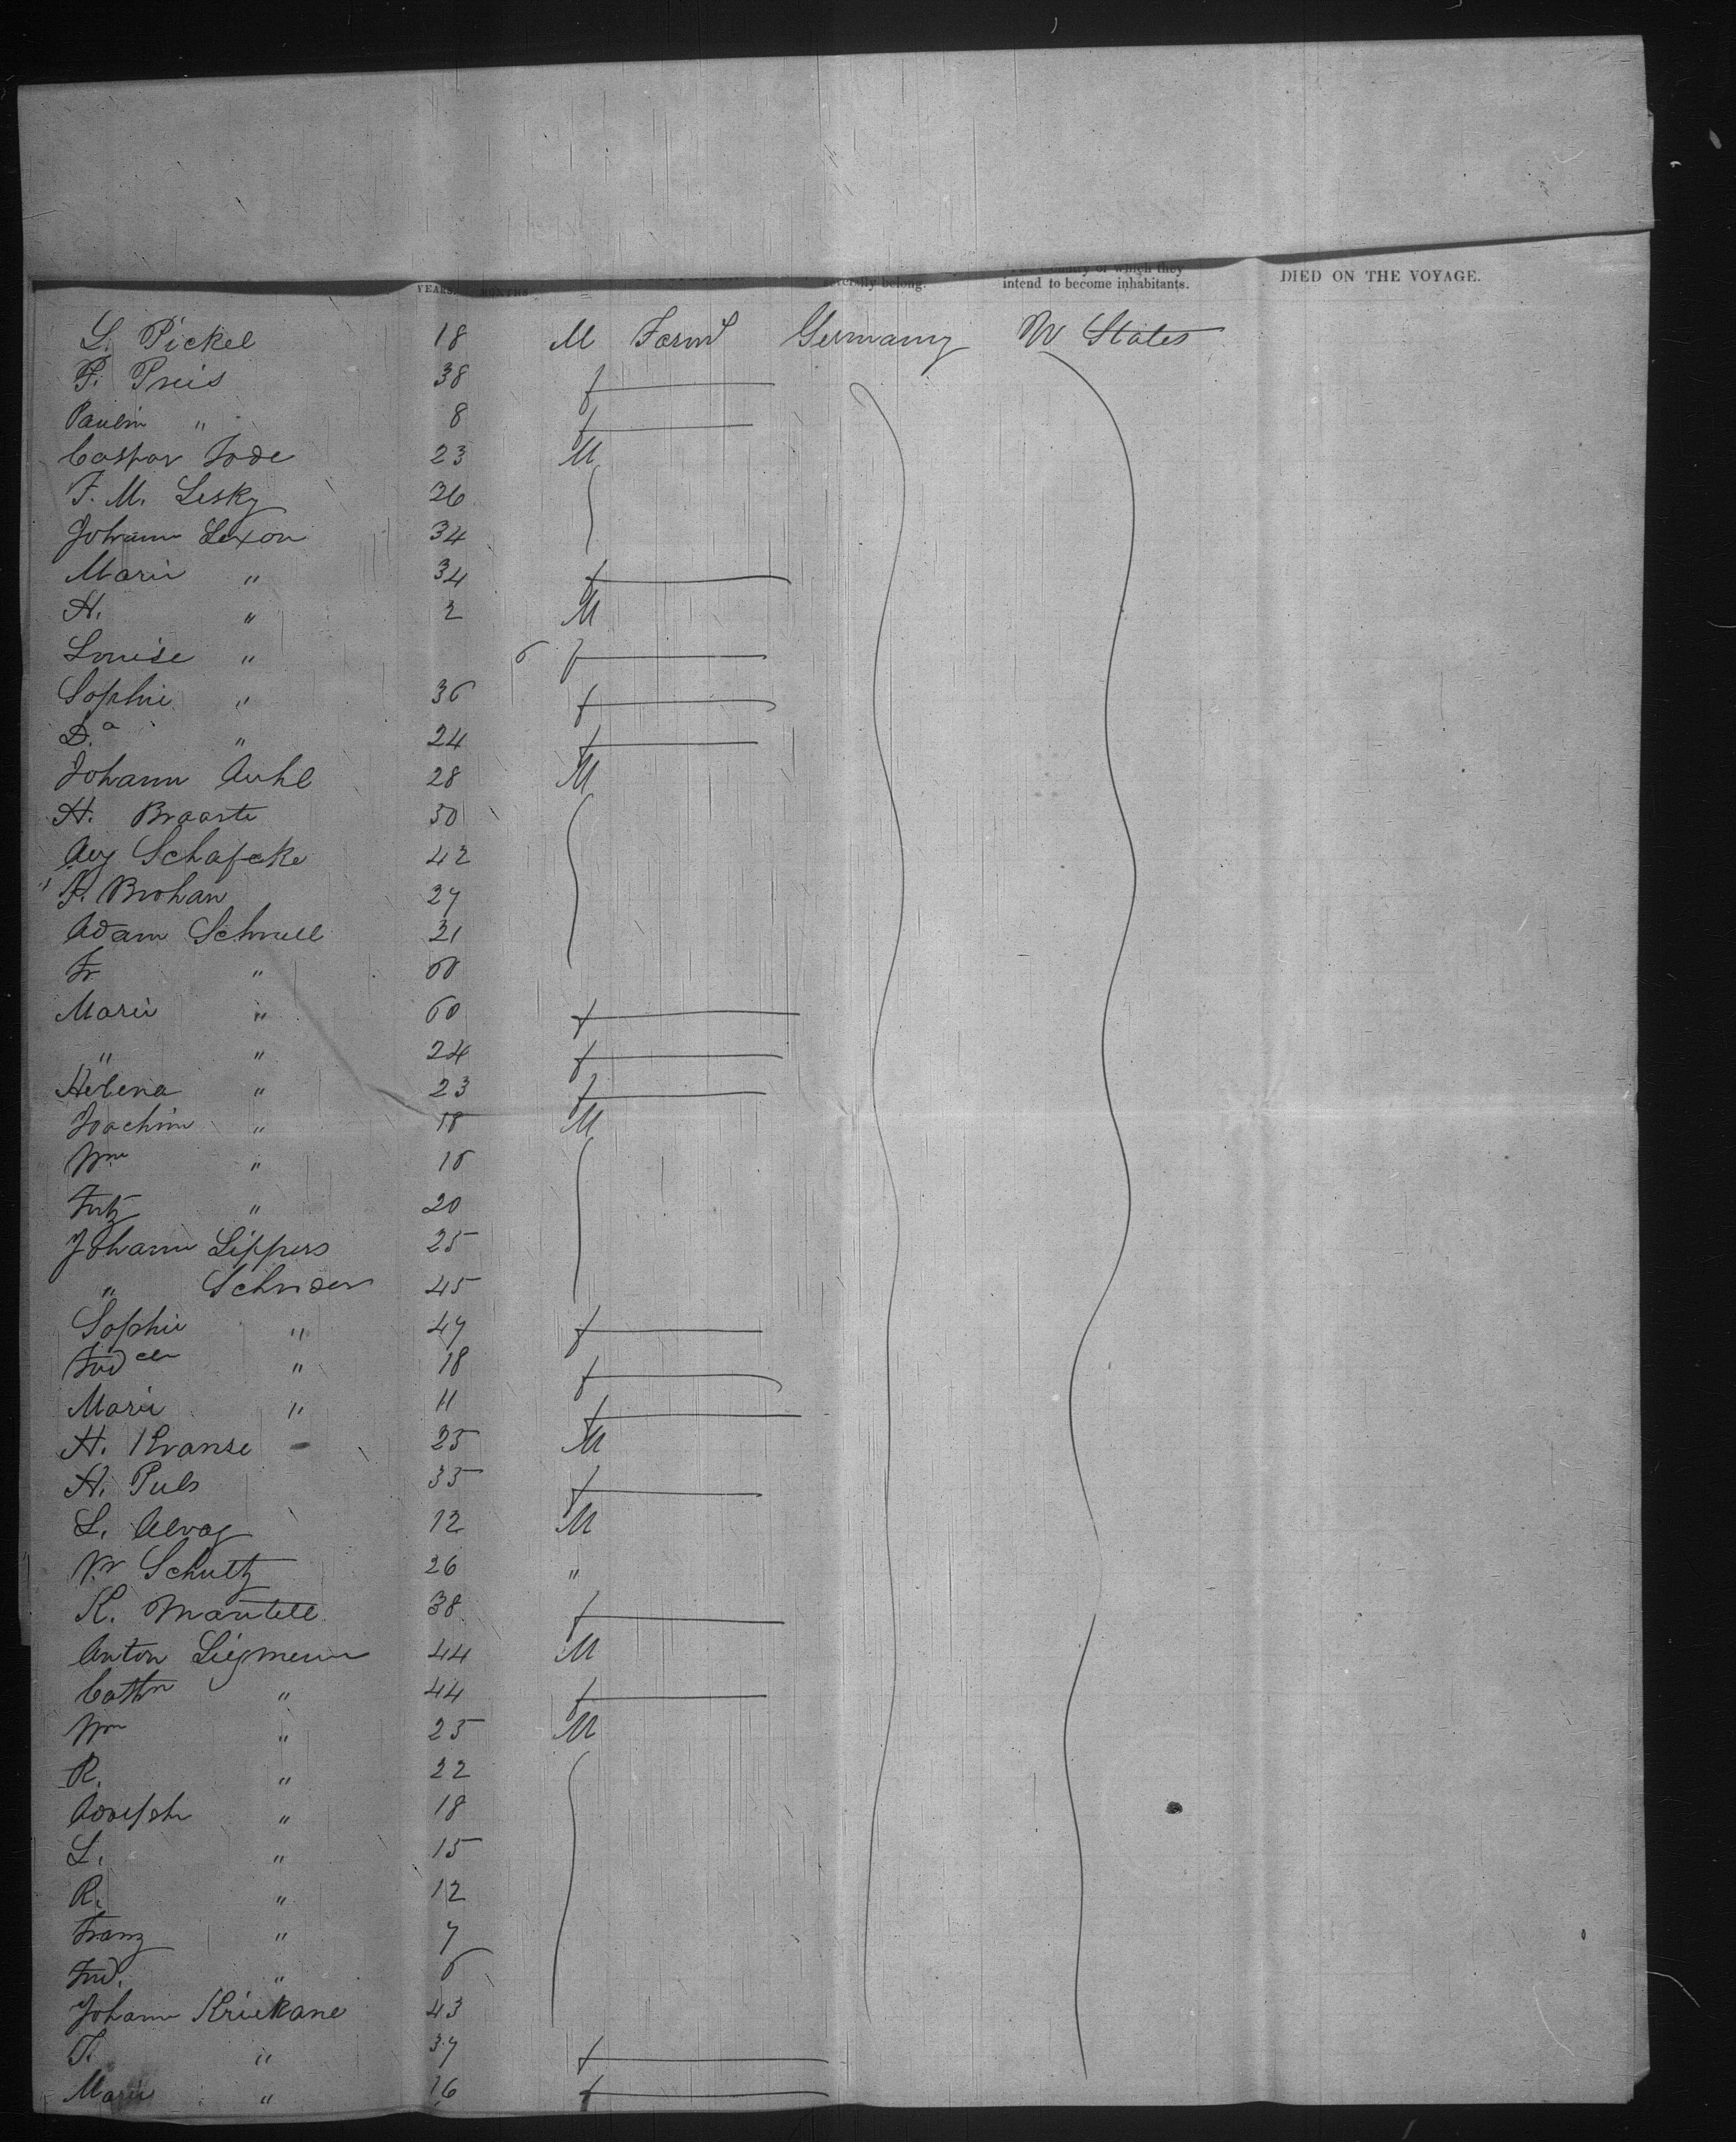 YEARS. MONTHS severally belong. country of which they
intend to become inhabitants. DIED ON THE VOYAGE.
L. Pickel 18 M Farmr Germany W States
F. Preis 38 f
Paulin " 8 f
Caspar Jode 23 M
F. M. Lesky 26
Johann Lexon 34
Marie " 34 f
H. " 2 M
Louise " 6 f
Sophie " 36 f
D.a " 24 f
Johann Auhl 28 M
H. Braaste 30
Aug Schafcke 42
" F. Brohan 27
Adam Schnell 31
Fr " 60
Marie " 60 f
" " 24 f
Helena " 23 f
Joachim " 18 M
Wm " 16
Fritz " 20
Johann Lippers 25
" Schrider 45
Sophie " 47 f
Fridcke " 18 f
Marie " 11 f
H. Kranse 25 M
A. Puls 35 f
L. Alvag 12 M
W Schultz 26 "
K. Mantell 38 f
Anton Liegmenn 44 M
Cathn " 44 f
Wm " 25 M
R. " 22
Adolph " 18
L. " 15
R. " 12
Franz " 7
Frd. " 6
Johann Kriekane 43
T. " 37 f
Marie " 16 f